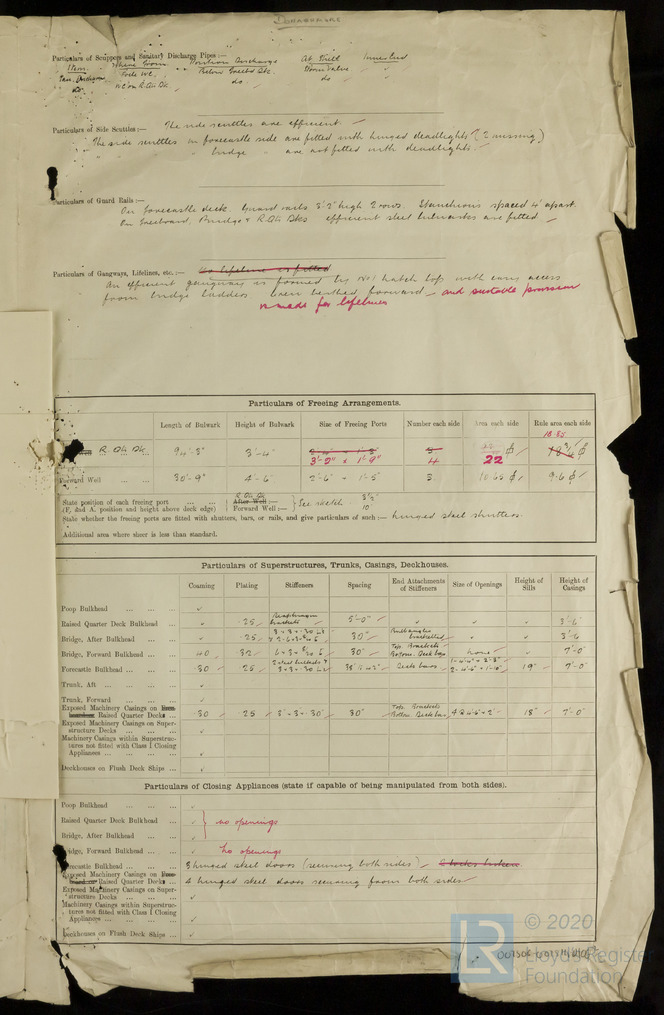 DONAGHMORE
Particulars of Scuppers and Sanitary Discharge Pipes :—
Item. Where From Position Discharge At Shell Inner End
Below Freebd Dk. Storm Valve
do. W.C. on R.Qtr Dk. do. do
Particulars of Side Scuttles :— The side scuttles are efficient.
The side scuttles in forecastle side are fitted with hinged deadlights (2 missing)
" " " bridge " are not fitted with deadlights.
Particulars of Guard Rails :—
On forecastle deck Guard rails 3'-2" high 2 rows. Stanchions spaced 4' apart.
On Freeboard, Bridge & R.Qtr Dks efficient steel bulwarks are fitted.
Particulars of Gangways, Lifelines, etc. :— No lifeline is fitted
An efficient gangway is formed by No 1 hatch top with easy access
from bridge ladders crew berthed forward and suitable provision
is made for lifelines
Particulars of Freeing Arrangements.
Length of Bulwark Height of Bulwark Size of Freeing Ports Number each side Area each side Rule area each side
18.85
R. Qtr Dk. ... ... 94'-3" 3'-4" 3 18 3/4
3'-2" x 1'-9" 4 22
Forward Well ... ... 30'-9" 4'-6" 2'-6" x 1'-5" 3 10.65 9.6
State position of each freeing port ... ... R. Qtr Dk After Well :— See sketch 3½"
(F. and A. position and height above deck edge) Forward Well :— 10"
State whether the freeing ports are fitted with shutters, bars, or rails, and give particulars of such :— hinged steel shutters.
Additional area where sheer is less than standard.
Particulars of Superstructures, Trunks, Casings, Deckhouses.
Coaming Plating Stiffeners Spacing End Attachments of Stiffeners Size of Openings Height of Sills Height of Casings
Poop Bulkhead ... ... ...
Raised Quarter Deck Bulkhead ... .25 brackets 5'-0" 3'-6"
Bridge, After Bulkhead ... ... .25 30" bracketted 3'-6
Bridge, Forward Bulkhead ... ... .40 .32 30" Top. Brackets Bottom. Deck bar none 7'-0"
Forecastle Bulkhead ... ... .30 .25 3 x 3 x .30 19" 7'-0"
Trunk, Aft ... ... ...
Trunk, Forward ... ... ...
Exposed Machinery Casings on Freeboard or Raised Quarter Decks ... .30 .25 3 x 3 x .30 30" Top. Brackets Bottom Deck bar 18" 7'-0"
Exposed Machinery Casings on Superstructure Decks ... ...
Machinery Casings within Superstructures not fitted with Class I Closing Appliances ... ... ...
Deckhouses on Flush Deck Ships ...
Particulars of Closing Appliances (state if capable of being manipulated from both sides).
Poop Bulkhead ... ... ...
Raised Quarter Deck Bulkhead ... no openings
Bridge, After Bulkhead ... ...
Bridge, Forward Bulkhead ... ... no openings
Forecastle Bulkhead ... ... 3 hinged steel doors (securing both sides) 2 locks broken
Exposed Machinery Casings on Freeboard or Raised Quarter Decks ... 4 hinged steel doors securing from both sides
Exposed Machinery Casings on Superstructure Decks ... ...
Machinery Casings within Superstructures not fitted with Class I Closing Appliances ... ... ...
Deckhouses on Flush Deck Ships ...
LR
© 2020
Lloyd's Register
Foundation